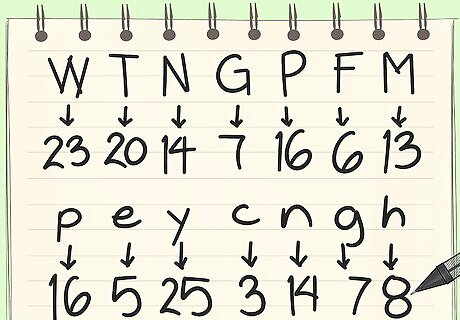 W T N G P F M
↓ ↓ ↓ ↓ ↓ ↓ ↓
23 20 14 7 16 6 13
p e y c n g h
↓ ↓ ↓ ↓ ↓ ↓ ↓
16 5 25 3 14 7 8